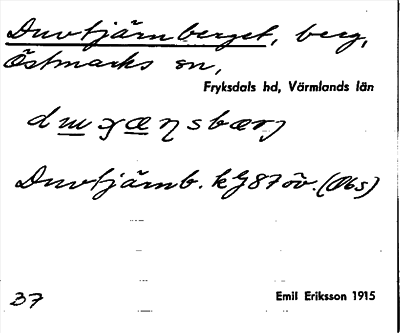 Duvtjärnberget, berg,
Östmarks sn,
Fryksdals hd, Värmlands län
Duvtjärnb. kg 87 öv. (Obs)
37
Emil Eriksson 1915